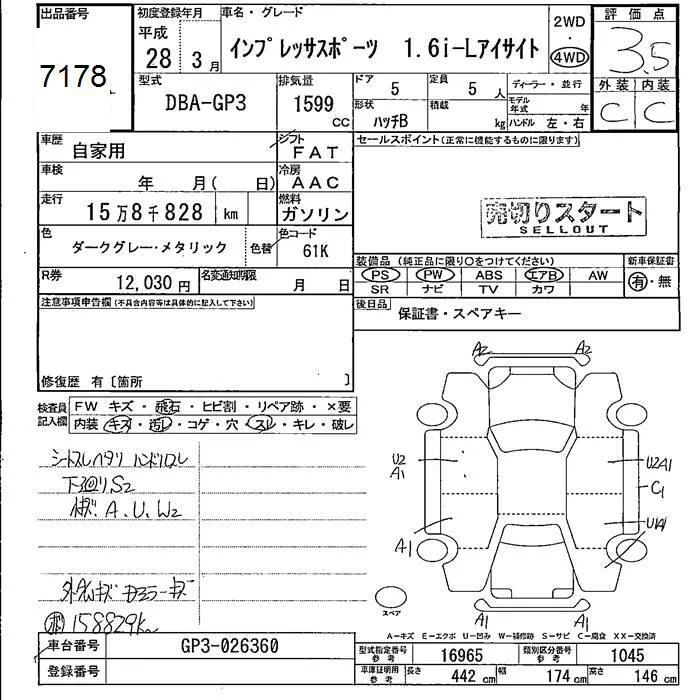 出品番号
7178
初度登録年月
平成
28 3月
車名・グレード
インプレッサスポーツ 1.6i-Lアイサイト
2WD
・
4WD
評価点
3.5
外装 内装
C C
型式
DBA-GP3
排気量
1599
CC
ドア
5
定員
5 人
ディーラー・並行
モデル年式 年
形状
ハッチB
積載
kg
ハンドル 左・右
車歴
自家用
シフト
FAT
車検
年 月( 日)
冷房
AAC
走行
15万8千828 km
燃料
ガソリン
色
ダークグレー・メタリック
色替
色コード
61K
R券
12,030 円
名変通知期限
月 日
セールスポイント(正常に機能するものに限ります)
売切りスタート
SELLOUT
装備品(純正品に限り○をつけてください)
PS PW ABS エアB AW
SR ナビ TV カワ
新車保証書
有・無
後日品
保証書・スペアキー
注意事項申告欄(不具合内容等は具体的に記入して下さい)
修復歴 有〔箇所 〕
検査員
記入欄
FW キズ・飛石・ヒビ割・リペア跡・×要
内装 キズ・汚レ・コゲ・穴・スレ・キレ・破レ
シートスレヘタリ ハンドルスレ
下廻りS2
A.U.W2
158829K
A2 A2
U2
A1
U2A1
C1
A1
U1A1
A1 A1
スペア
A-キズ E-エクボ U-凹み W-補修跡 S-サビ C-腐食 XX-交換済
車台番号
GP3-026360
登録番号
型式指定番号
参考
16965
類別区分番号
参考
1045
車庫証明用
参考
長さ
442 cm
幅
174 cm
高さ
146 cm